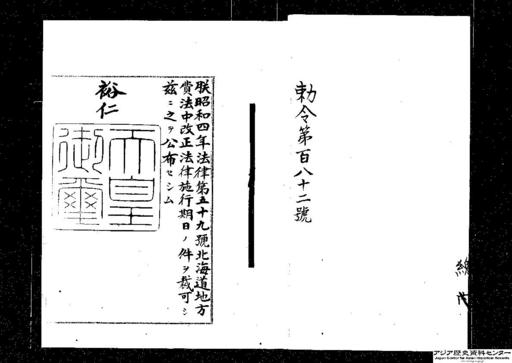 勅令第百八十二號
朕昭和四年法律第五十九號北海道地方
費法中改正法律施行期日ノ件ヲ裁可シ
茲ニ之ヲ公布セシム
裕仁
天皇
御璽
アジア歴史資料センター
Japan Center for Asian Historical Records